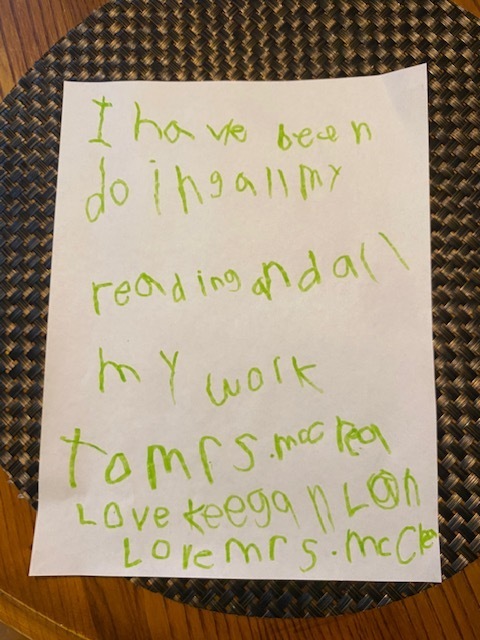 I have been
doing all my
reading and all
my work
To mrs. mccrea
Love Keegan L
Love mrs. mcCre